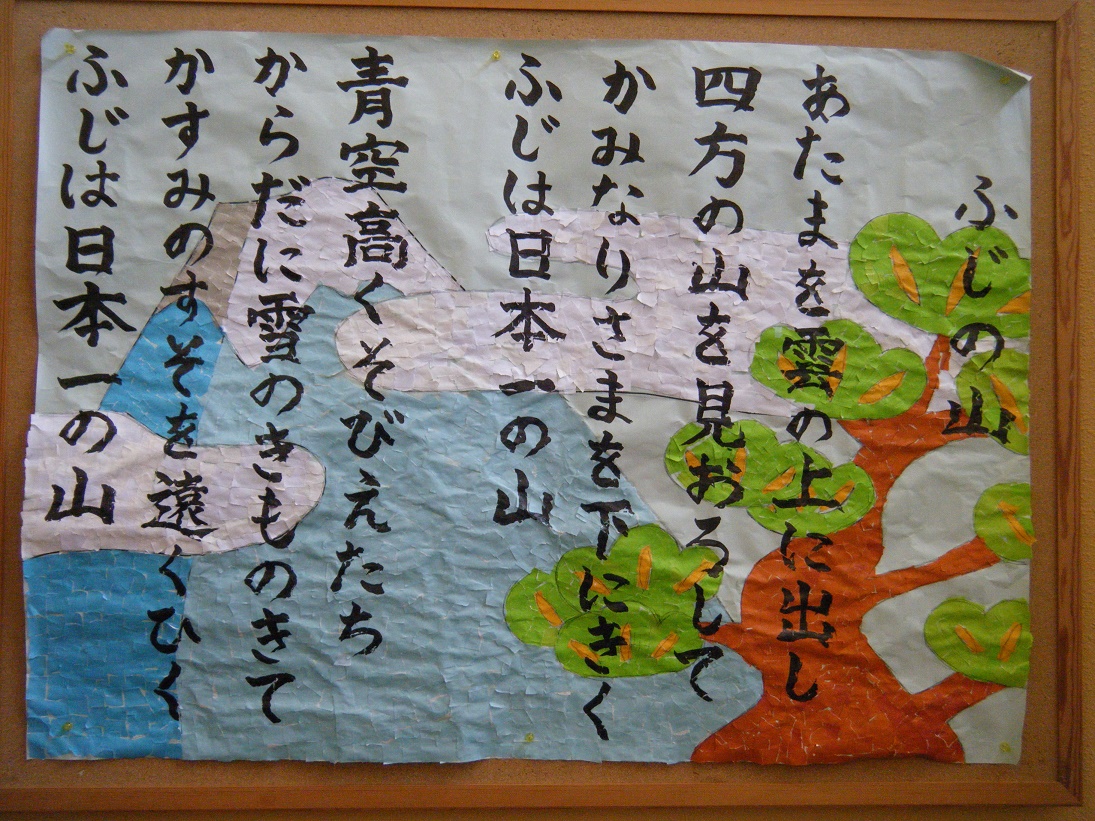 ふじの山
あたまを雲の上に出し
四方の山を見おろして
かみなりさまを下にきく
ふじは日本一の山
青空高くそびえたち
からだに雪のきものきて
かすみのすそを遠くひく
ふじは日本一の山